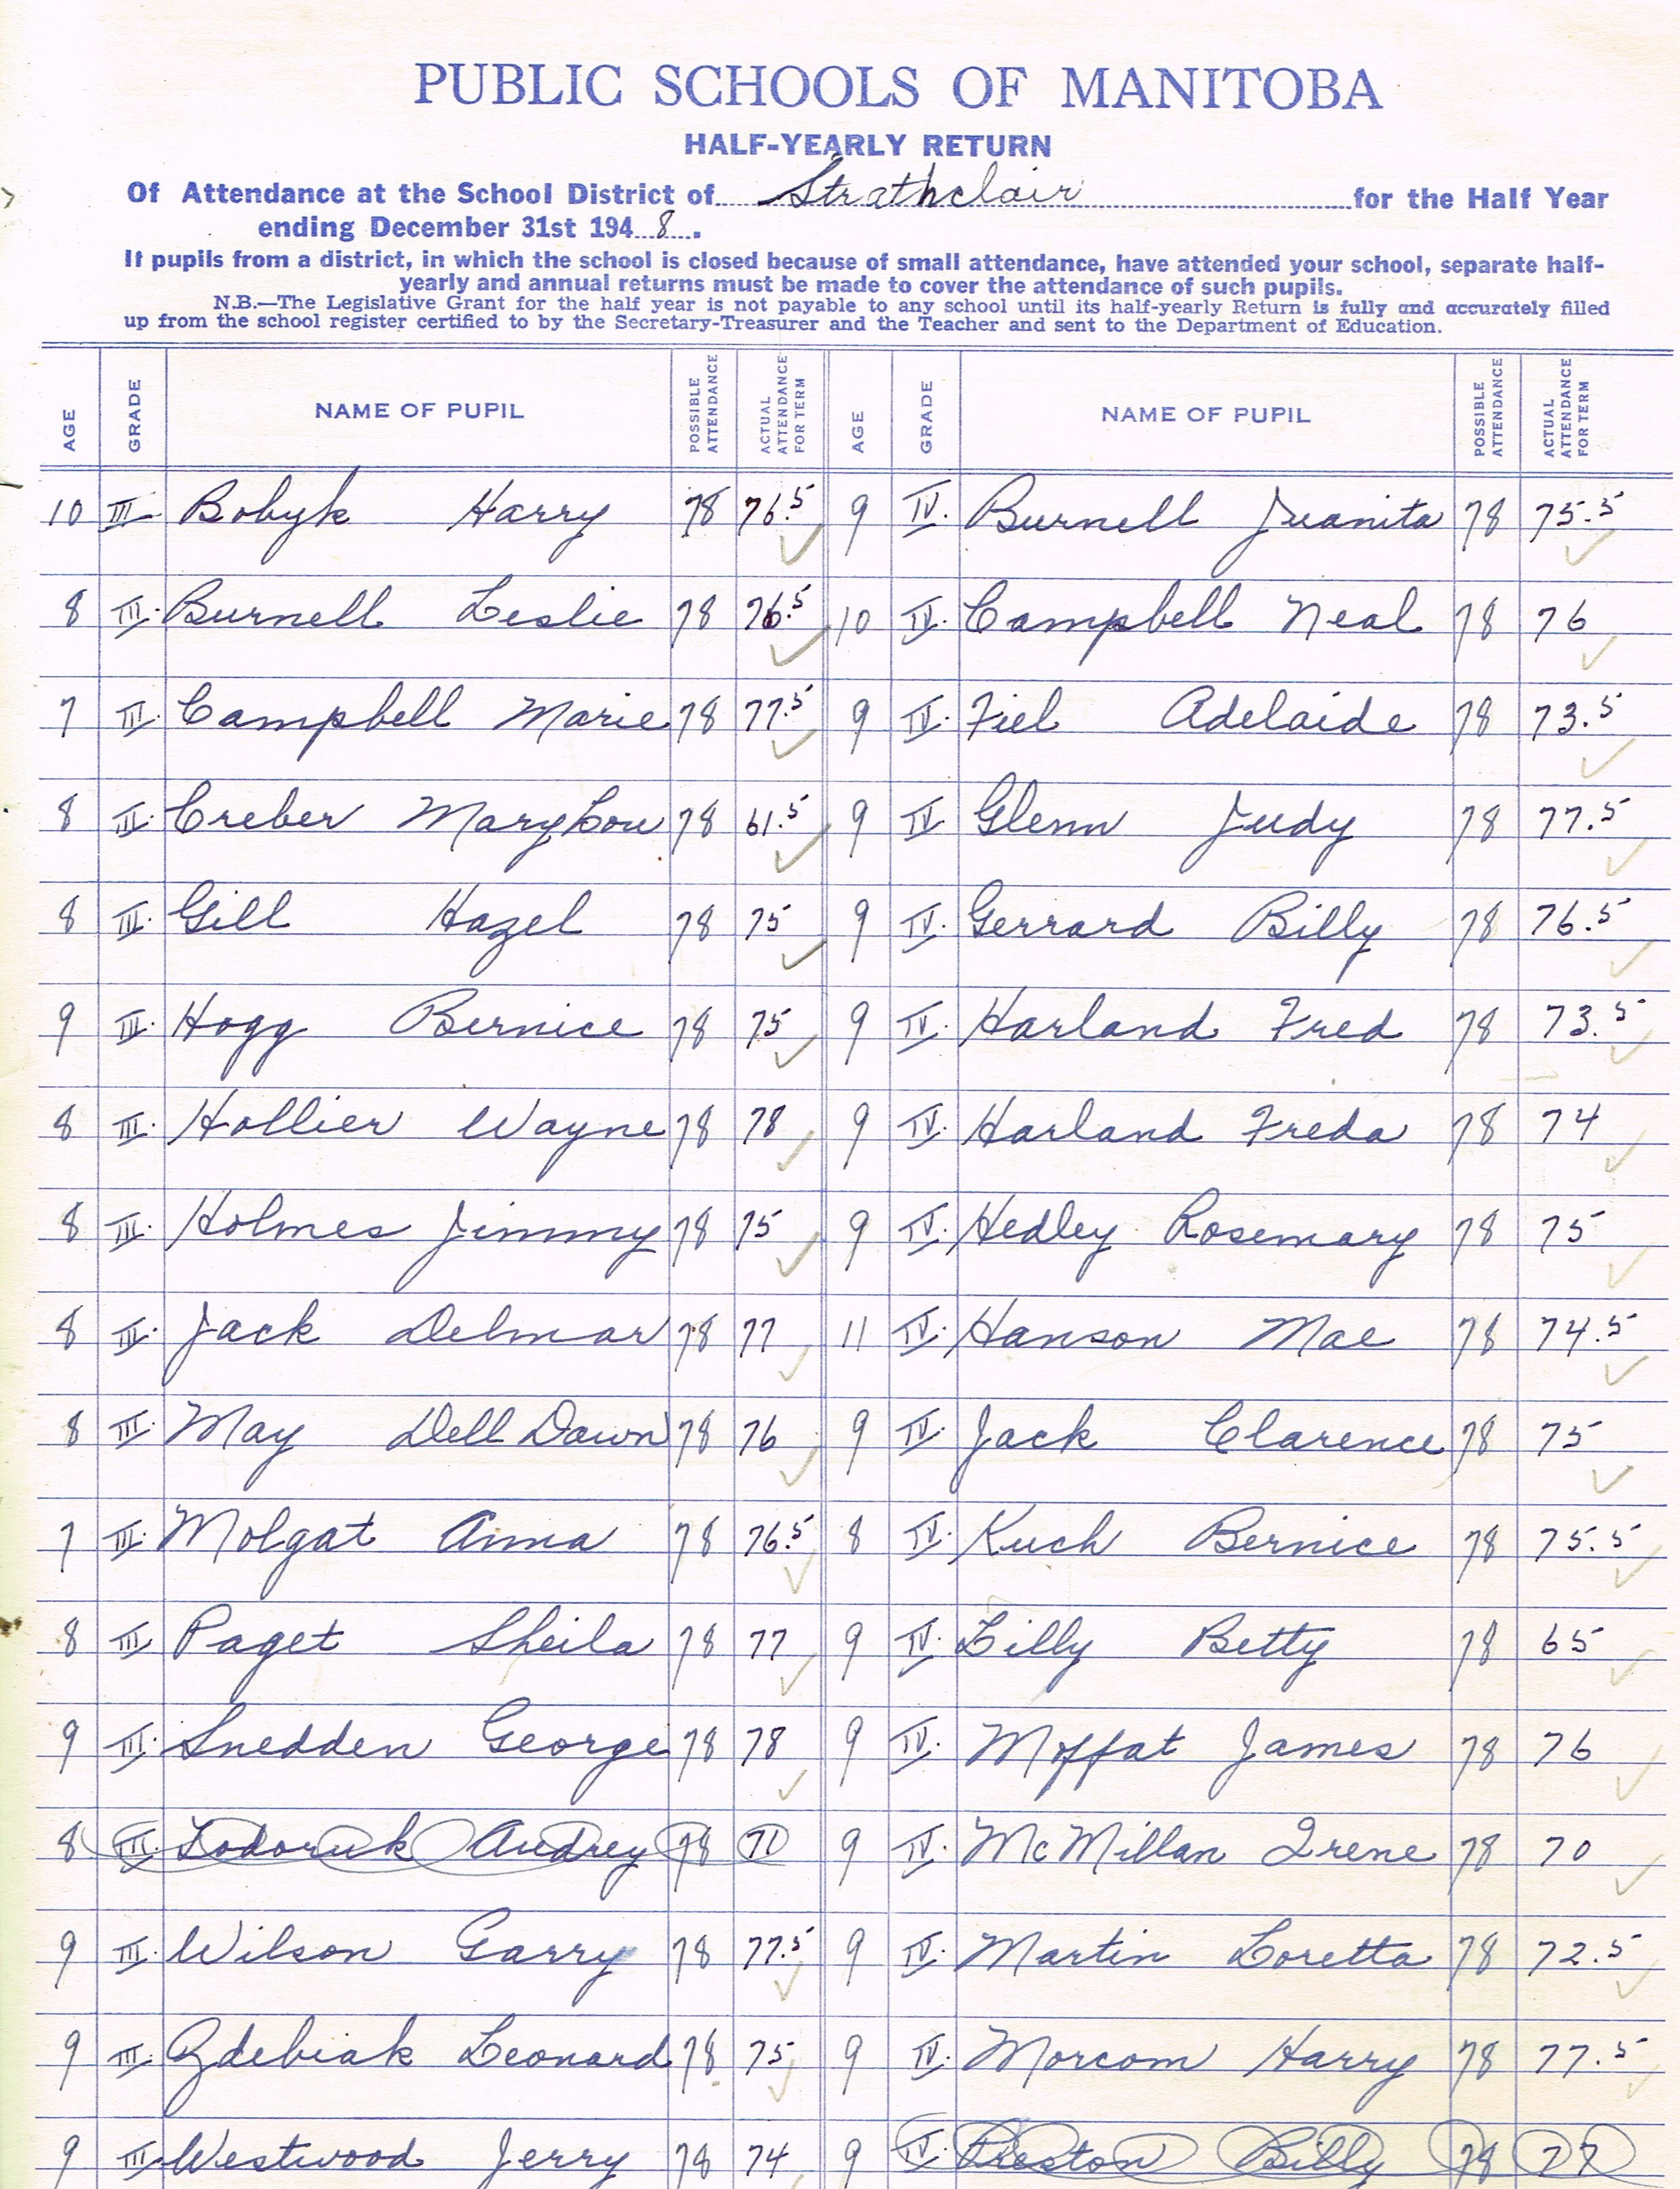 PUBLIC SCHOOLS OF MANITOBA
HALF-YEARLY RETURN
Of Attendance at the School District of Strathclair for the Half Year
ending December 31st 1948.
If pupils from a district, in which the school is closed because of small attendance, have attended your school, separate half-
yearly and annual returns must be made to cover the attendance of such pupils.
N.B.—The Legislative Grant for the half year is not payable to any school until its half-yearly Return is fully and accurately filled
up from the school register certified to by the Secretary-Treasurer and the Teacher and sent to the Department of Education.
AGE GRADE NAME OF PUPIL POSSIBLE ATTENDANCE ACTUAL ATTENDANCE FOR TERM AGE GRADE NAME OF PUPIL POSSIBLE ATTENDANCE ACTUAL ATTENDANCE FOR TERM
10 III Bobyk Harry 78 76.5 9 IV. Burnell Juanita 78 75.5
8 III. Burnell Leslie 78 76.5 10 IV. Campbell Neal 78 76
7 III. Campbell Marie 78 77.5 9 IV. Fiel Adelaide 78 73.5
8 III. Creber Mary Lou 78 61.5 9 IV Glenn Judy 78 77.5
8 III. Gill Hazel 78 75 9 IV. Gerrard Billy 78 76.5
9 III. Hogg Bernice 78 75 9 IV. Harland Fred 78 73.5
8 III. Hollier Wayne 78 78 9 IV. Harland Freda 78 74
8 III. Holmes Jimmy 78 75 9 IV. Hedley Rosemary 78 75
8 III. Jack Delmar 78 77 11 IV. Hanson Mae 78 74.5
8 III. May Dell Dawn 78 76 9 IV. Jack Clarence 78 75
7 III. Molgat Anna 78 76.5 8 IV. Kuch Bernice 78 75.5
8 III Paget Sheila 78 77 9 IV. Lilly Betty 78 65
9 III. Snedden George 78 78 9 IV. Moffat James 78 76
8 III. Todoruk Audrey 78 71 9 IV. McMillan Irene 78 70
9 III. Wilson Garry 78 77.5 9 IV. Martin Loretta 78 72.5
9 III. Zdebiak Leonard 78 75 9 IV. Morcom Harry 78 77.5
9 III Westwood Jerry 78 74 9 IV. Preston Billy 78 77